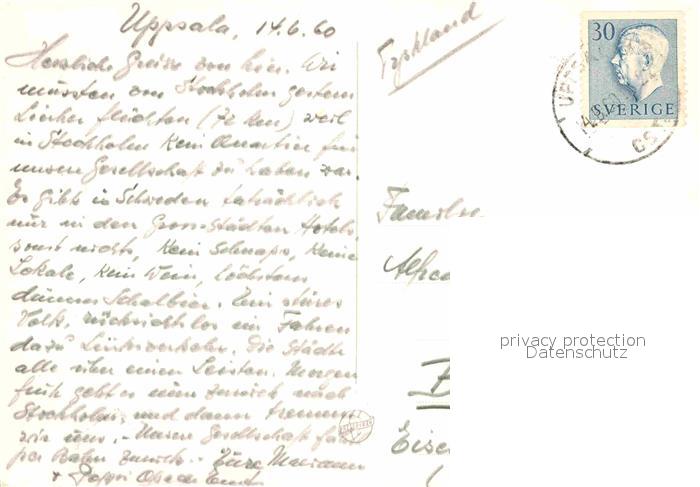 Uppsala, 14.6.60
Tyskland
30
SVERIGE
Herzliche Grüsse von hier. Wir
mussten von Stockholm gestern
hierher flüchten (72 km) weil
in Stockholm kein Quartier für
unsere Gesellschaft zu haben war.
Es gibt in Schweden tatsächlich
nur in den Gross-Städten Hotels,
sonst nichts, kein Schnaps, keine
Lokale, kein Wein, höchstens
dünnes Schalbier. Ein stures
Volk, rücksichtslos im Fahren
dazu Linksverkehr. Die Städte
alle über einen Leisten. Morgen
früh geht es nun zurück nach
Stockholm, und dann trennen
wir uns. - Unsere Gesellschaft fährt
per Bahn zurück. - Eure Mariann
+
Familie
Alfred
privacy protection
Datenschutz